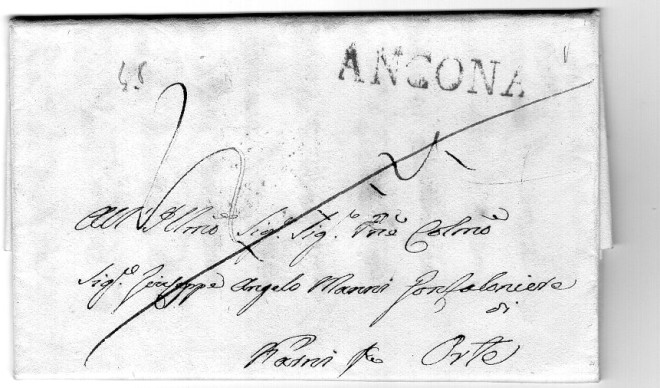 45
ANCONA
All'Illmo Sigr. Sigr. Pne Colmo
Sigr. Giuseppe Angelo Manni Gonfaloniere
di
Narni per Orte